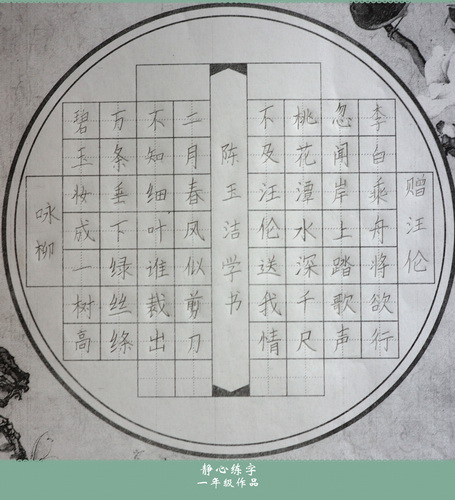 赠汪伦
李白乘舟将欲行
忽闻岸上踏歌声
桃花潭水深千尺
不及汪伦送我情
陈玉洁学书
咏柳
碧玉妆成一树高
万条垂下绿丝绦
不知细叶谁裁出
二月春风似剪刀
静心练字
一年级作品